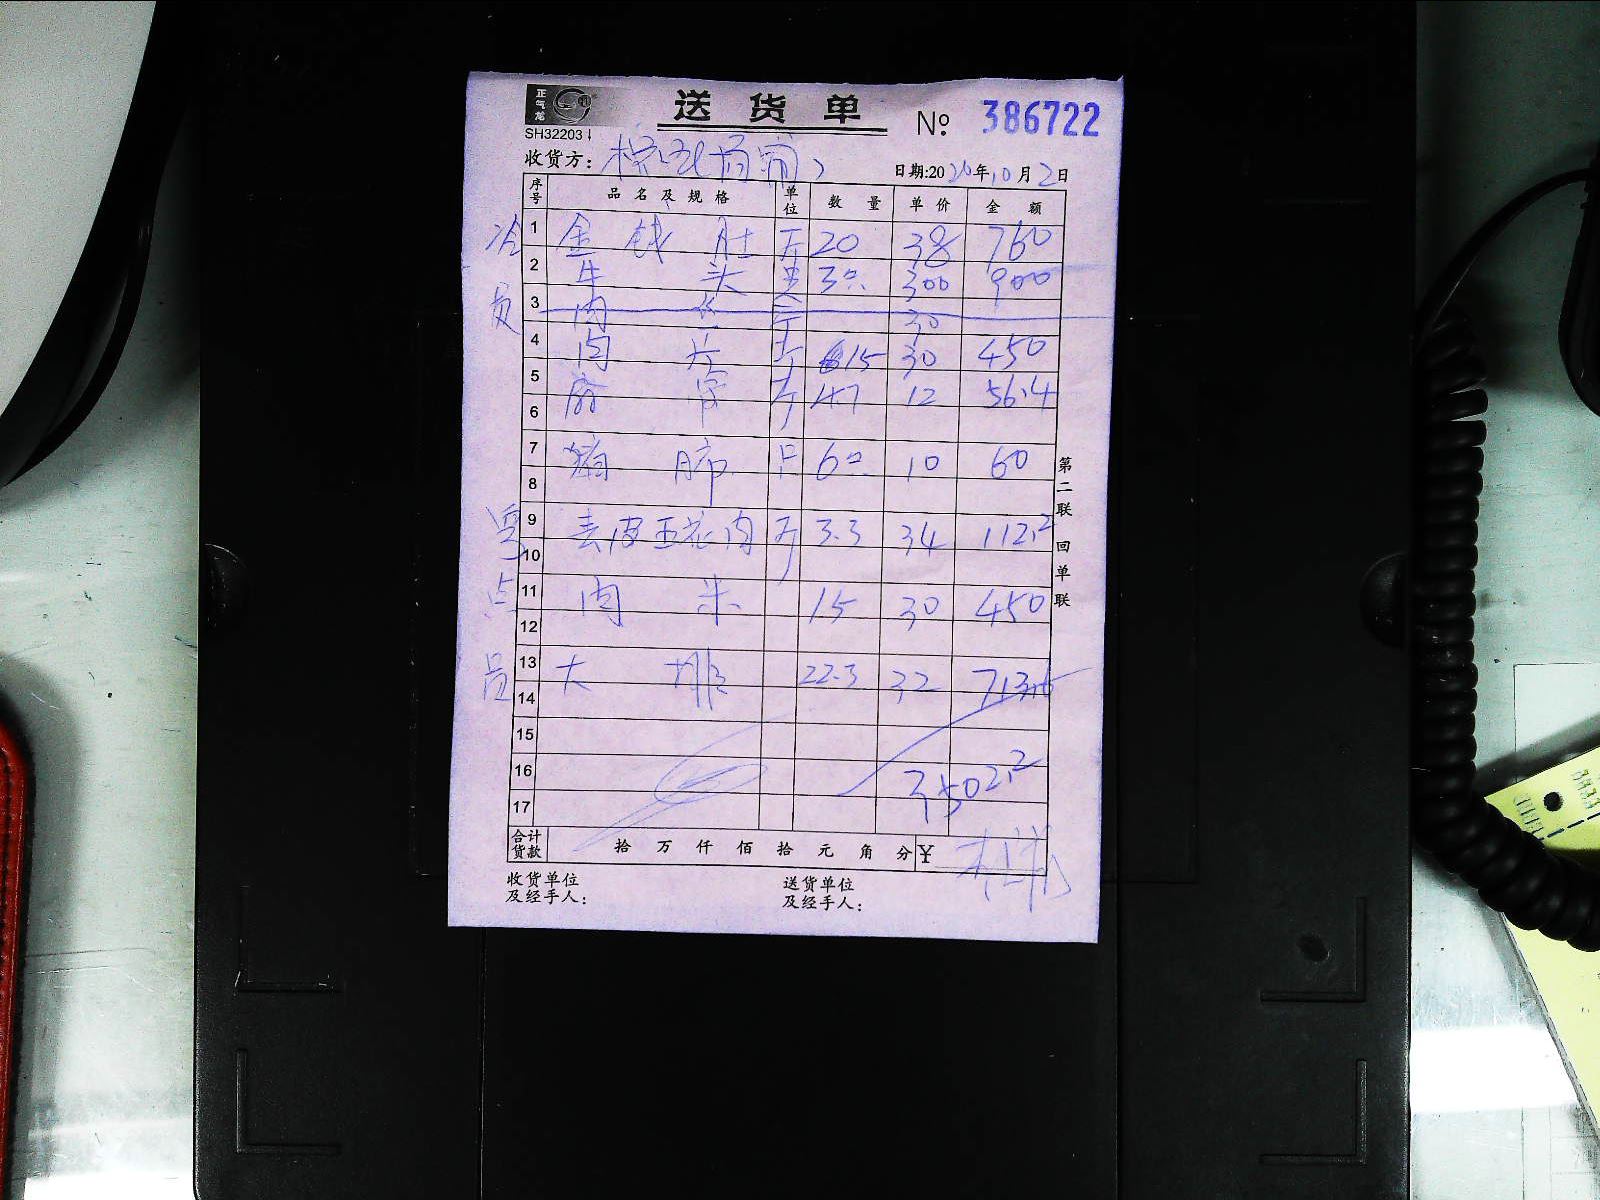 正气龙
送货单 № 386722
SH32203
收货方：
日期:2020年10月2日
序号 品名及规格 单位 数量 单价 金额
冷 1 金钱肚 斤 20 38 760
2 牛头 只 3只 300 900
3 肉 斤 30
4 肉片 斤 15 30 450
5 斤 4.7 12 56.4
6
7 猪肺 只 6只 10 60
8
9 去皮五花肉 斤 3.3 34 112.2
10
点 11 肉米 15 30 450
12
员 13 大排 22.3 32 713.6
14
15
16 3502.2
17
合计货款 拾 万 仟 佰 拾 元 角 分 ¥
收货单位及经手人：
送货单位及经手人：
第二联 回单联